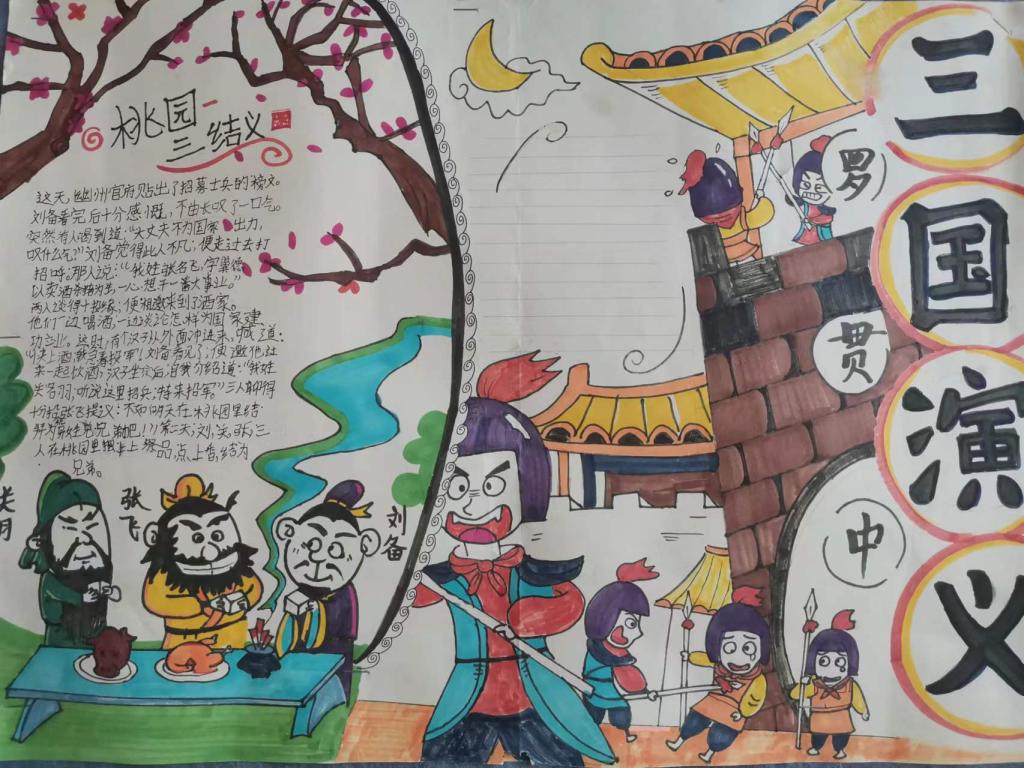 桃园
三结义
这天,幽州官府贴出了招募士兵的榜文。
刘备看完后十分感慨,不由长叹了一口气。
突然有人喝到道:“大丈夫不为国家出力,
叹什么气”刘备觉得此人不凡,便走过去打
招呼,那人说:“我姓张名飞,字翼德
以卖酒杀猪为生一心想干一番大事业。”
两人谈得十分投缘,便相邀来到了酒家。
他们一边喝酒,一边谈论怎样为国家建
功立业。这时,有个汉子从外面冲进来,喊道:
上酒,我急着投军”刘备看见了,便邀他过
来一起饮酒,汉子坐下后,自我介绍道:“我姓
关名羽,听说这里招兵,特来投军”三人聊得
张飞提议:不如明天在桃园里结
第二天,刘、关、张三
人在桃园里摆上祭品,点上香,结为
兄弟。
关羽
张飞
刘备
三国演义
罗贯中